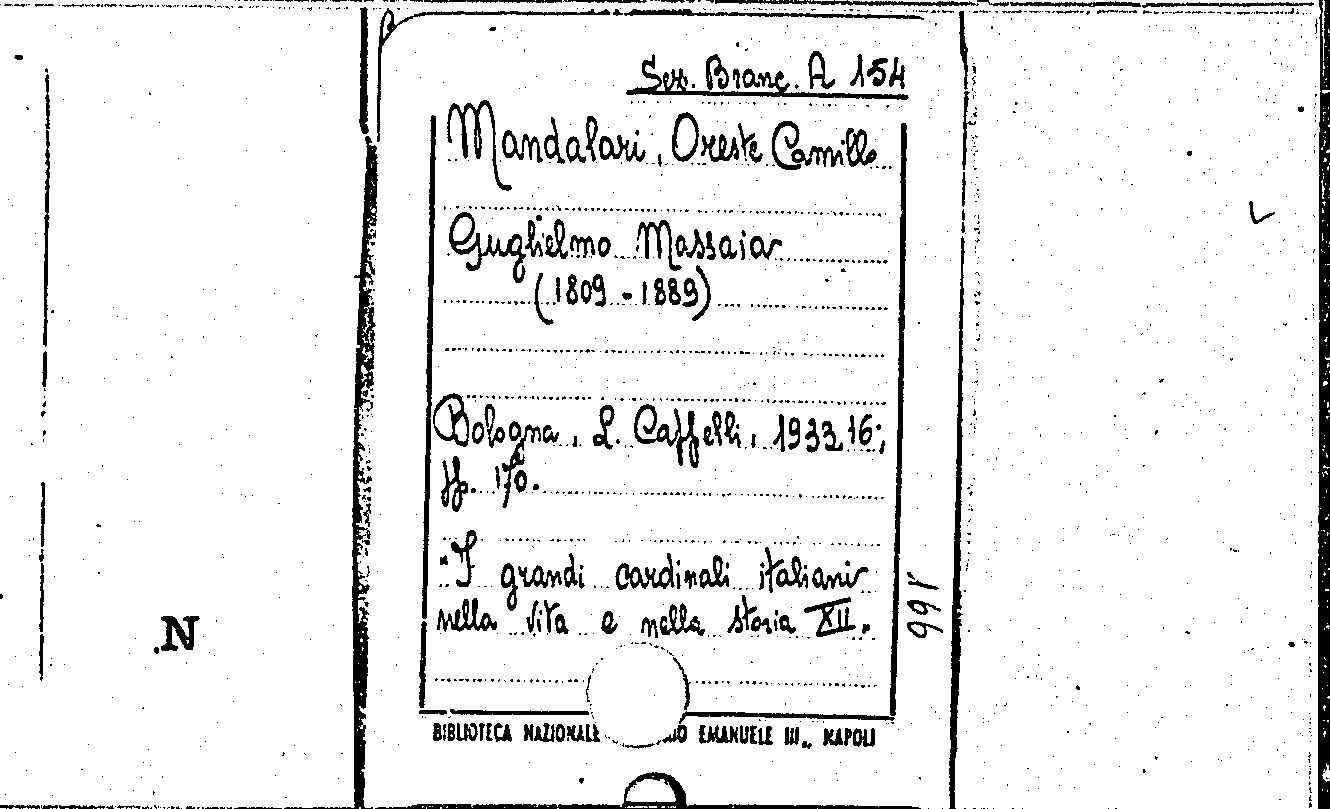 Sez. Branc. A 154
Mandalari, Oreste Camillo
Guglielmo Massaia
(1809 - 1889)
Bologna, L. Caffelli, 1933, 16º;
pp. 170.
"I grandi cardinali italiani
nella vita e nella storia XII.
BIBLIOTECA NAZIONALE EMANUELE III„ NAPOLI
.N